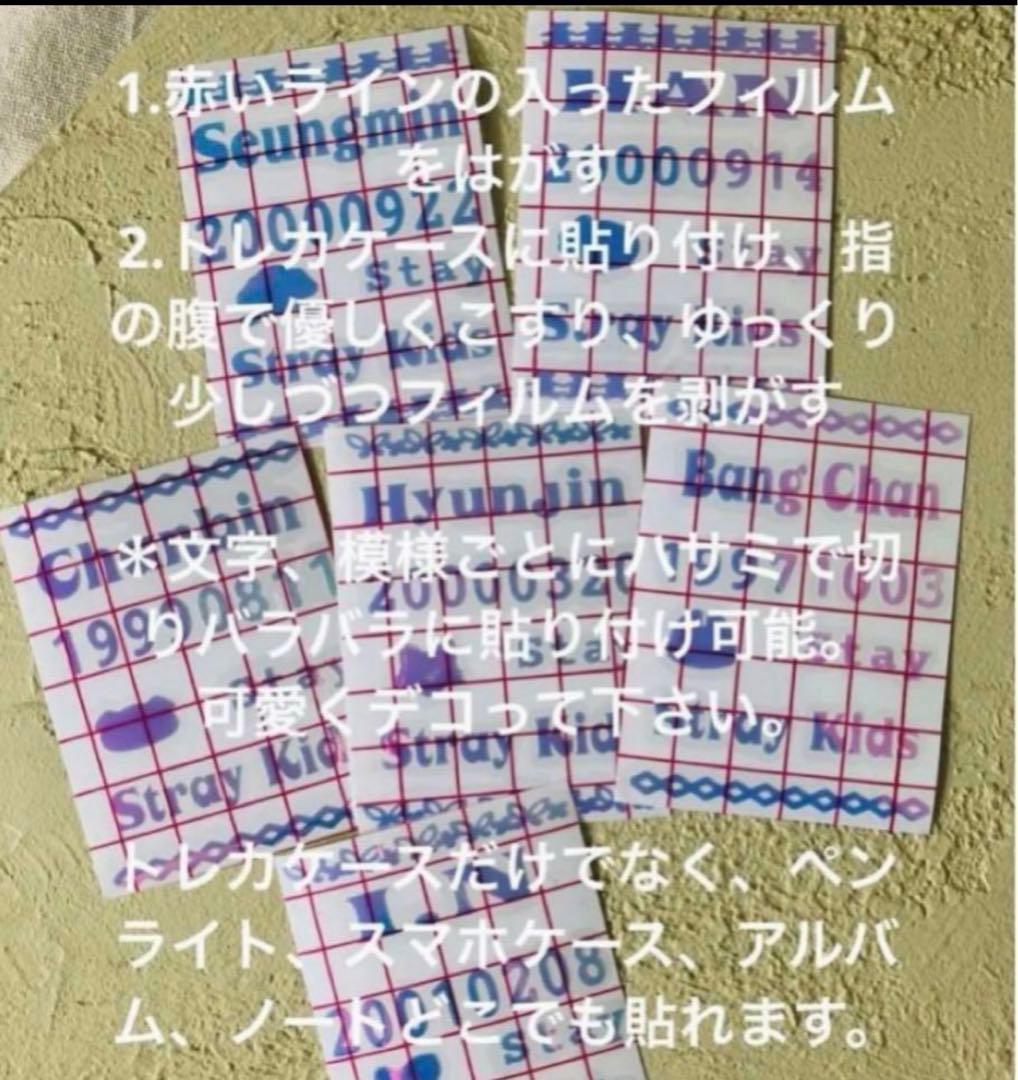 1.赤いラインの入ったフィルム
をはがす
2.トレカケースに貼り付け、指
の腹で優しくこすり、ゆっくり
少しづつフィルムを剥がす
*文字、模様ごとにハサミで切
りバラバラに貼り付け可能。
可愛くデコって下さい。
トレカケースだけでなく、ペン
ライト、スマホケース、アルバ
ム、ノートどこでも貼れます。
Seungmin
20000922
stay
Stray Kids
HAN
20000914
stay
Stray Kids
Changbin
19990811
stay
Stray Kid
Hyunjin
20000320
sta
Stray Kid
Bang Chan
19971003
stay
Stray Kids
I.N
20010208
stay